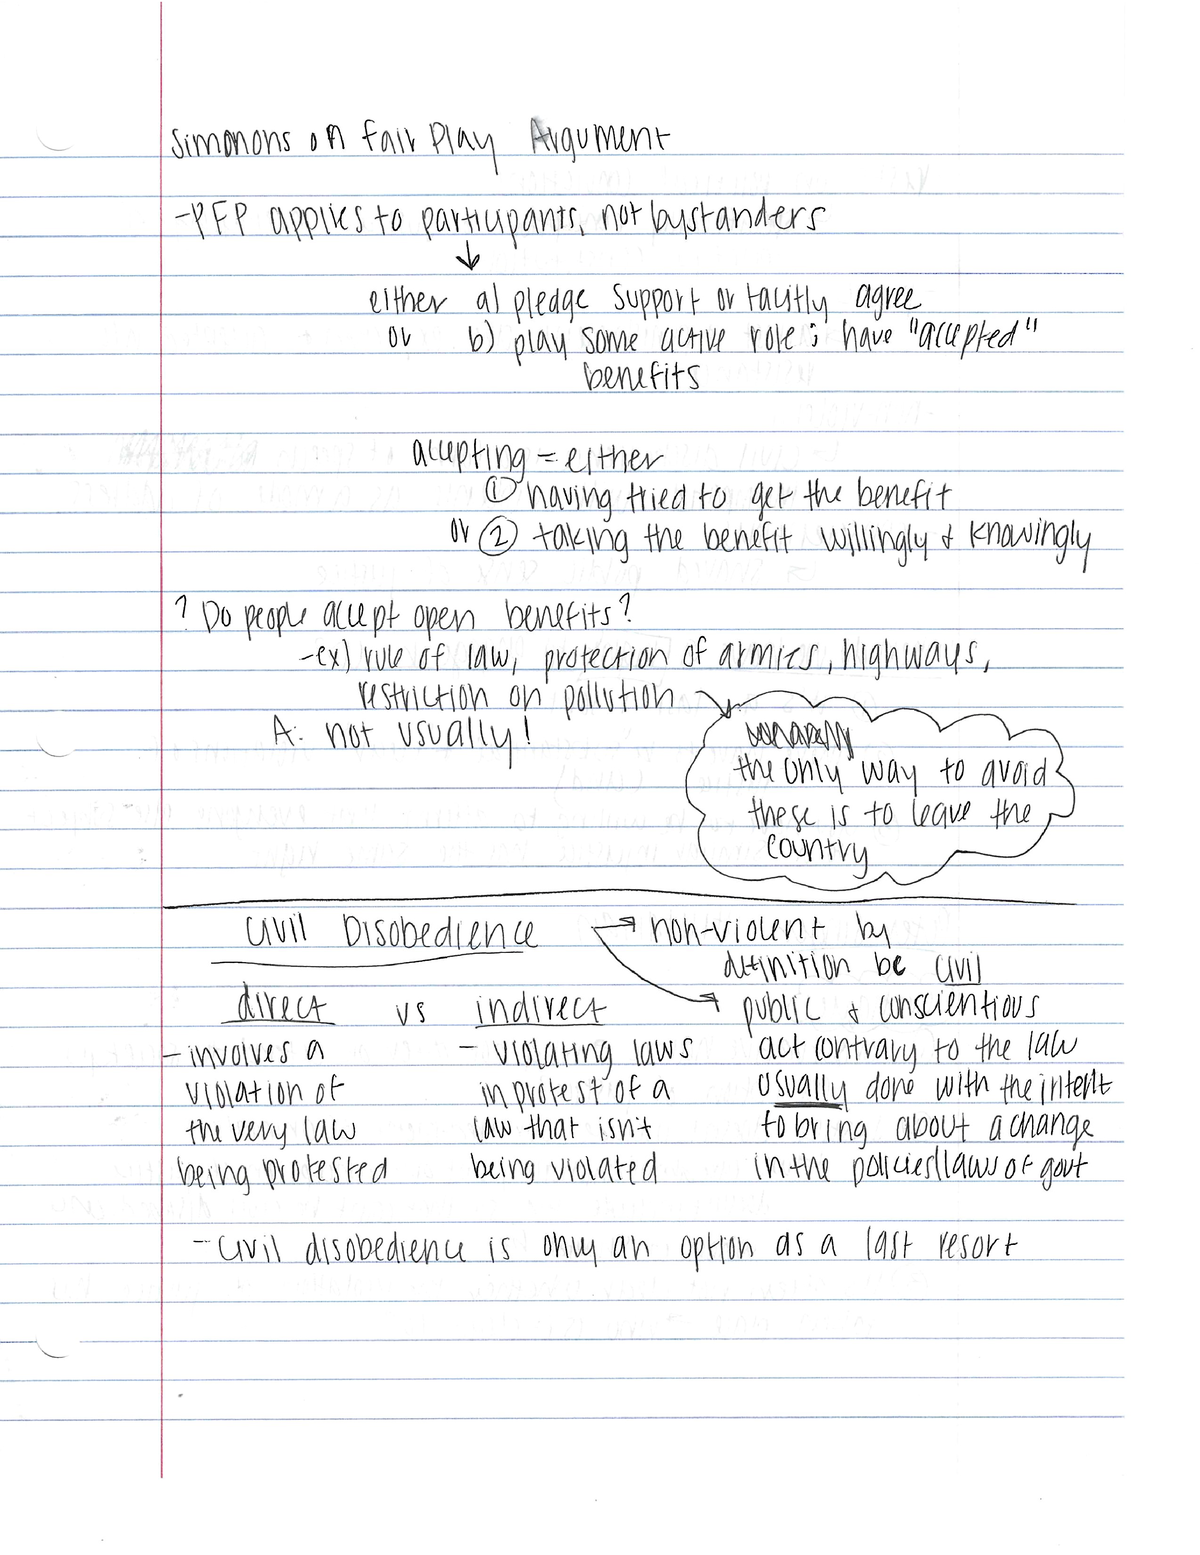 Simonons on Fair Play Argument
-PFP applies to participants, not bystanders
↓
either a) pledge support or tacitly agree
or b) play some active role ; have "accepted"
benefits
accepting = either
① having tried to get the benefit
or ② taking the benefit willingly & knowingly
? Do people accept open benefits?
-ex) rule of law, protection of armies, highways,
restriction on pollution
A: not usually!
the only way to avoid
these is to leave the
country
Civil Disobedience
→ non-violent by
definition bc civil
direct vs indirect
- involves a
violation of
the very law
being protested
- violating laws
in protest of a
law that isn't
being violated
→ public & conscientious
act contrary to the law
usually done with the intent
to bring about a change
in the policies/laws of govt
- civil disobedience is only an option as a last resort